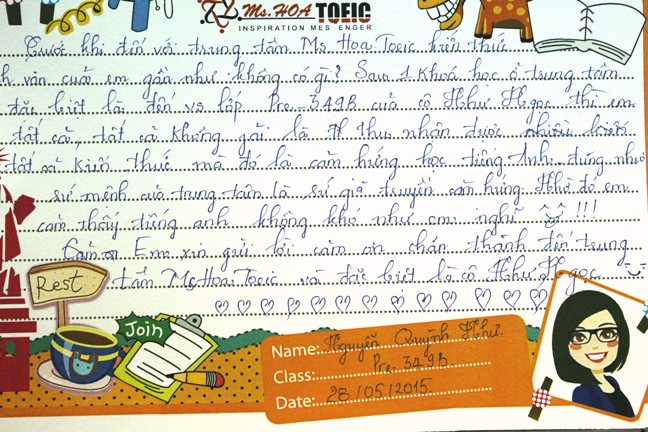 Ms. HOA TOEIC
INSPIRATION MESSENGER
Trước khi đến với trung tâm Ms. Hoa Toeic kiến thức
h văn cuả em gần như không có gì? Sau 1 khoá học ở trung tâm
đặc biệt là đến vs lớp Pre - 349B của cô Như Ngọc thì em
tất cả, tất cả không gải là thu nhận được nhiều kiến
tất cả kiến thức mà đó là cảm hứng học tiếng Anh. đúng như
sứ mệnh của trung tâm là sứ giả truyền cảm hứng. Nhờ đó em
cảm thấy tiếng anh không khó như em nghĩ !!!
Cảm ơn Em xin gửi lời cảm ơn chân thành đến trung
tâm Ms Hoa Toeic và đặc biệt là cô Như Ngọc
Rest
Join
Name: Nguyễn Quỳnh Như
Class: Pre 349B
Date: 28/05/2015